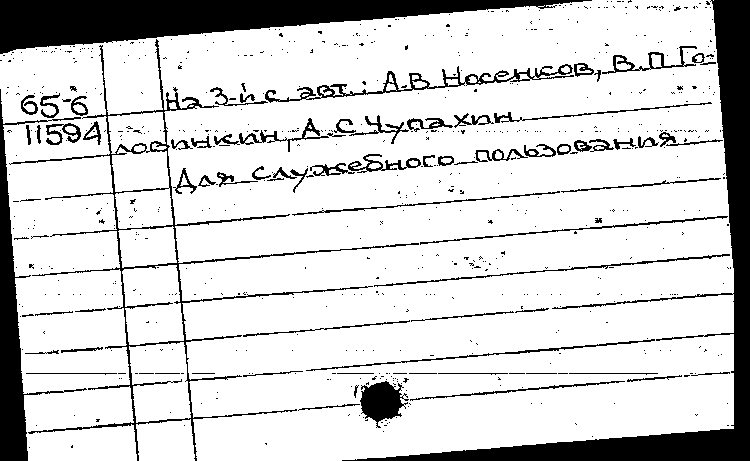 65-6
11594
На 3-й с. авт.: А.В. Носенков, В.П. Го-
ловинкин, А.С. Чупахин.
Для служебного пользования.